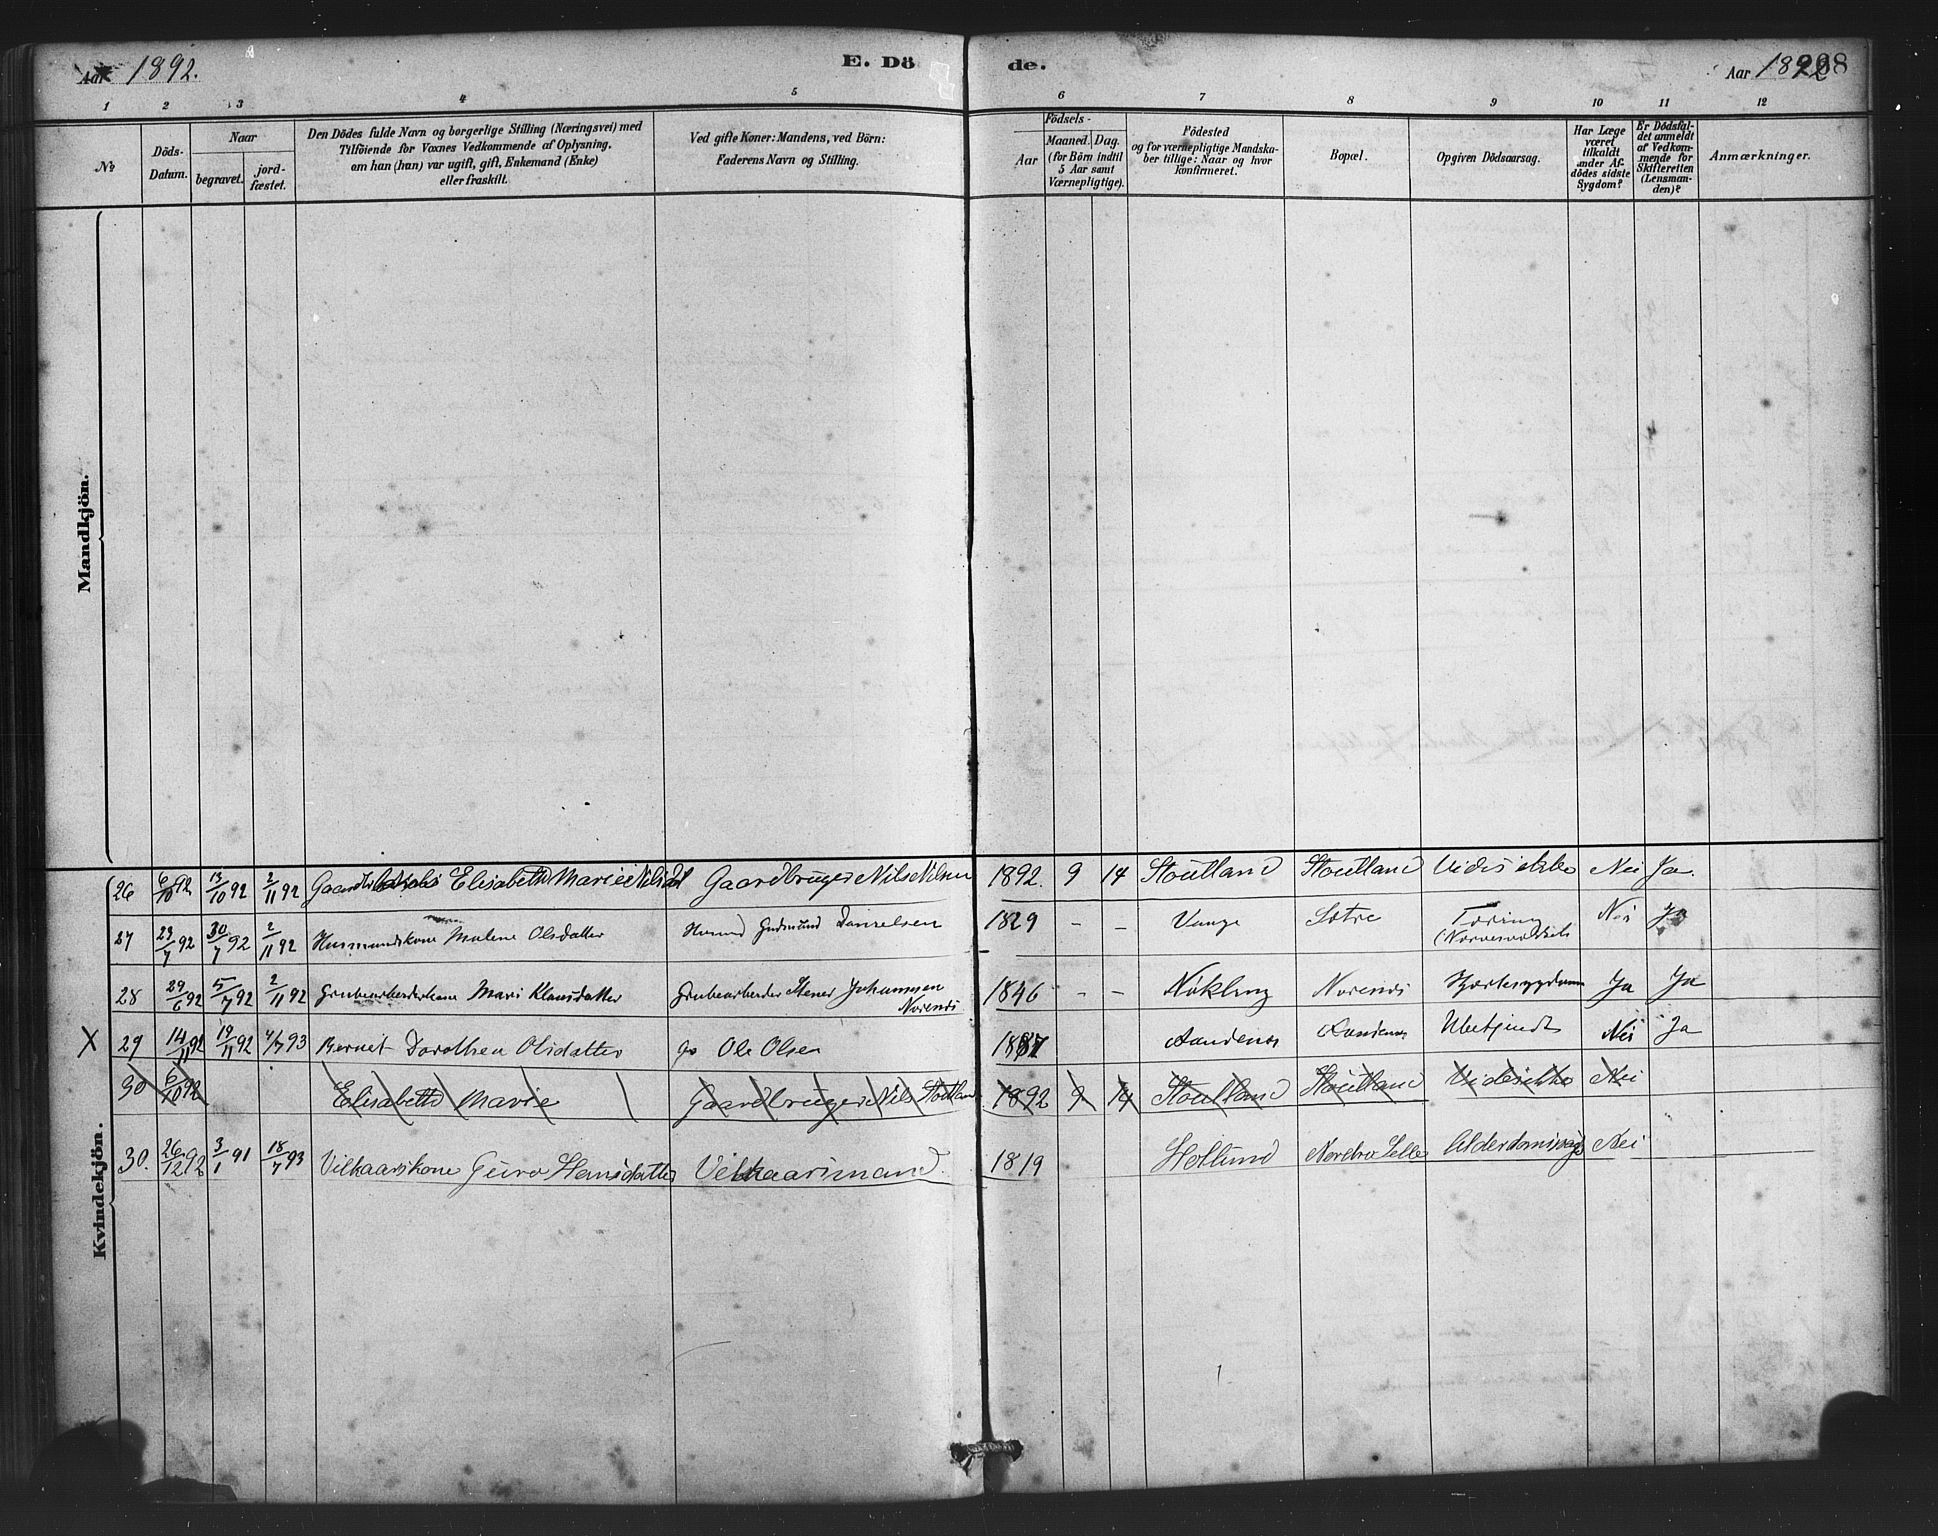 Aar 1892.
E. Dö
de.
Aar 1892
298
1 2 3 4 5 6 7 8 9 10 11 12
No
Döds-
Datum.
Naar
begravet.
jord-
fæstet.
Den Dödes fulde Navn og borgerlige Stilling (Næringsvei) med
Tilföiende for Voxnes Vedkommende af Oplysning,
om han (hun) var ugift, gift, Enkemand (Enke)
eller fraskilt.
Ved gifte Koner: Mandens, ved Börn:
Faderens Navn og Stilling.
Födsels-
Aar
Maaned. Dag.
(for Börn indtil
5 Aar samt
Værnepligtige).
Födested
og for værnepligtige Mandska-
ber tillige: Naar og hvor
konfirmeret.
Bopæl.
Opgiven Dödsaarsag.
Har Læge
været
tilkaldt
under Af-
dödes sidste
Sygdom?
Er Dödsfal-
det anmeldt
af Vedkom-
mende for
Skifteretten
(Lensman-
den)?
Anmærkninger.
Mandkjön.
Kvindekjön.
26 6/10 92 13/10 92 2/11 92 Elisabeth Marie Nilsdt Gaardbruger Nils Nilsen 1892. 9 14 Stoutland Stoutland Vides ikke Nei Ja.
27 23/7 92 30/7 92 2/11 92 Husmandskone Malene Olsdatter Husmd Gudmund Danielsen 1829 - - Vange Sætre Tæring Nei Ja
28 29/6 92 5/7 92 2/11 92 Grubearbeiderkone Mari Klausdatter Grubearbeider Stener Johannesen 1846 - - Nökling Norends Hjertesygdom Ja Ja
Norends
X 29 14/11 92 19/11 92 4/7 93 Bernet Dorothea Olsdatter Ole Olsen 1887 Sandenos Sandenos Ubetjendt Nei Ja
30 6/10 92 Elisabeth Marie Gaardbruger Nils Stoutland 1892 9 14 Stoutland Stoutland Vides ikke Nei
30. 26/12 92 3/1 91 18/7 93 Vilkaarskone Guro Hansdatter Vilkaarsmand. 1819 Hollund Nordre Selle Alderdomssvag Nei